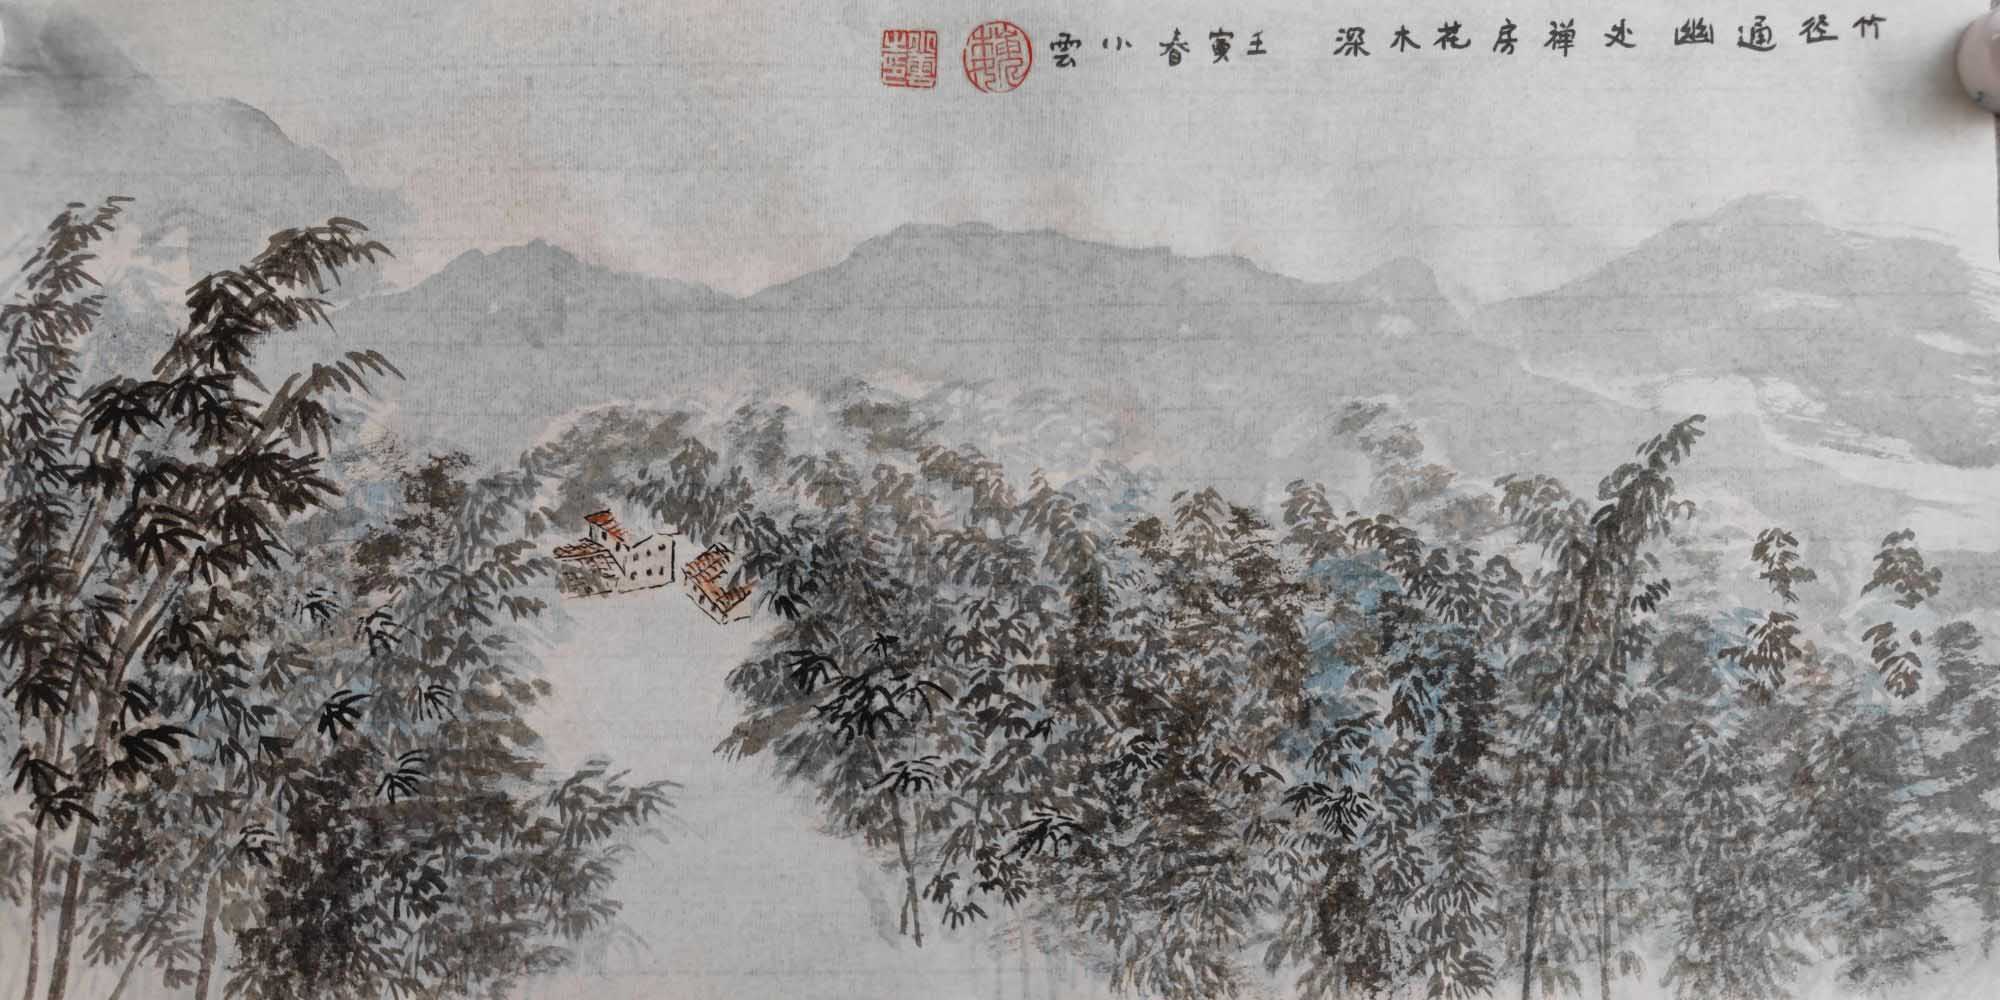 竹径通幽处禅房花木深 壬寅春小雲